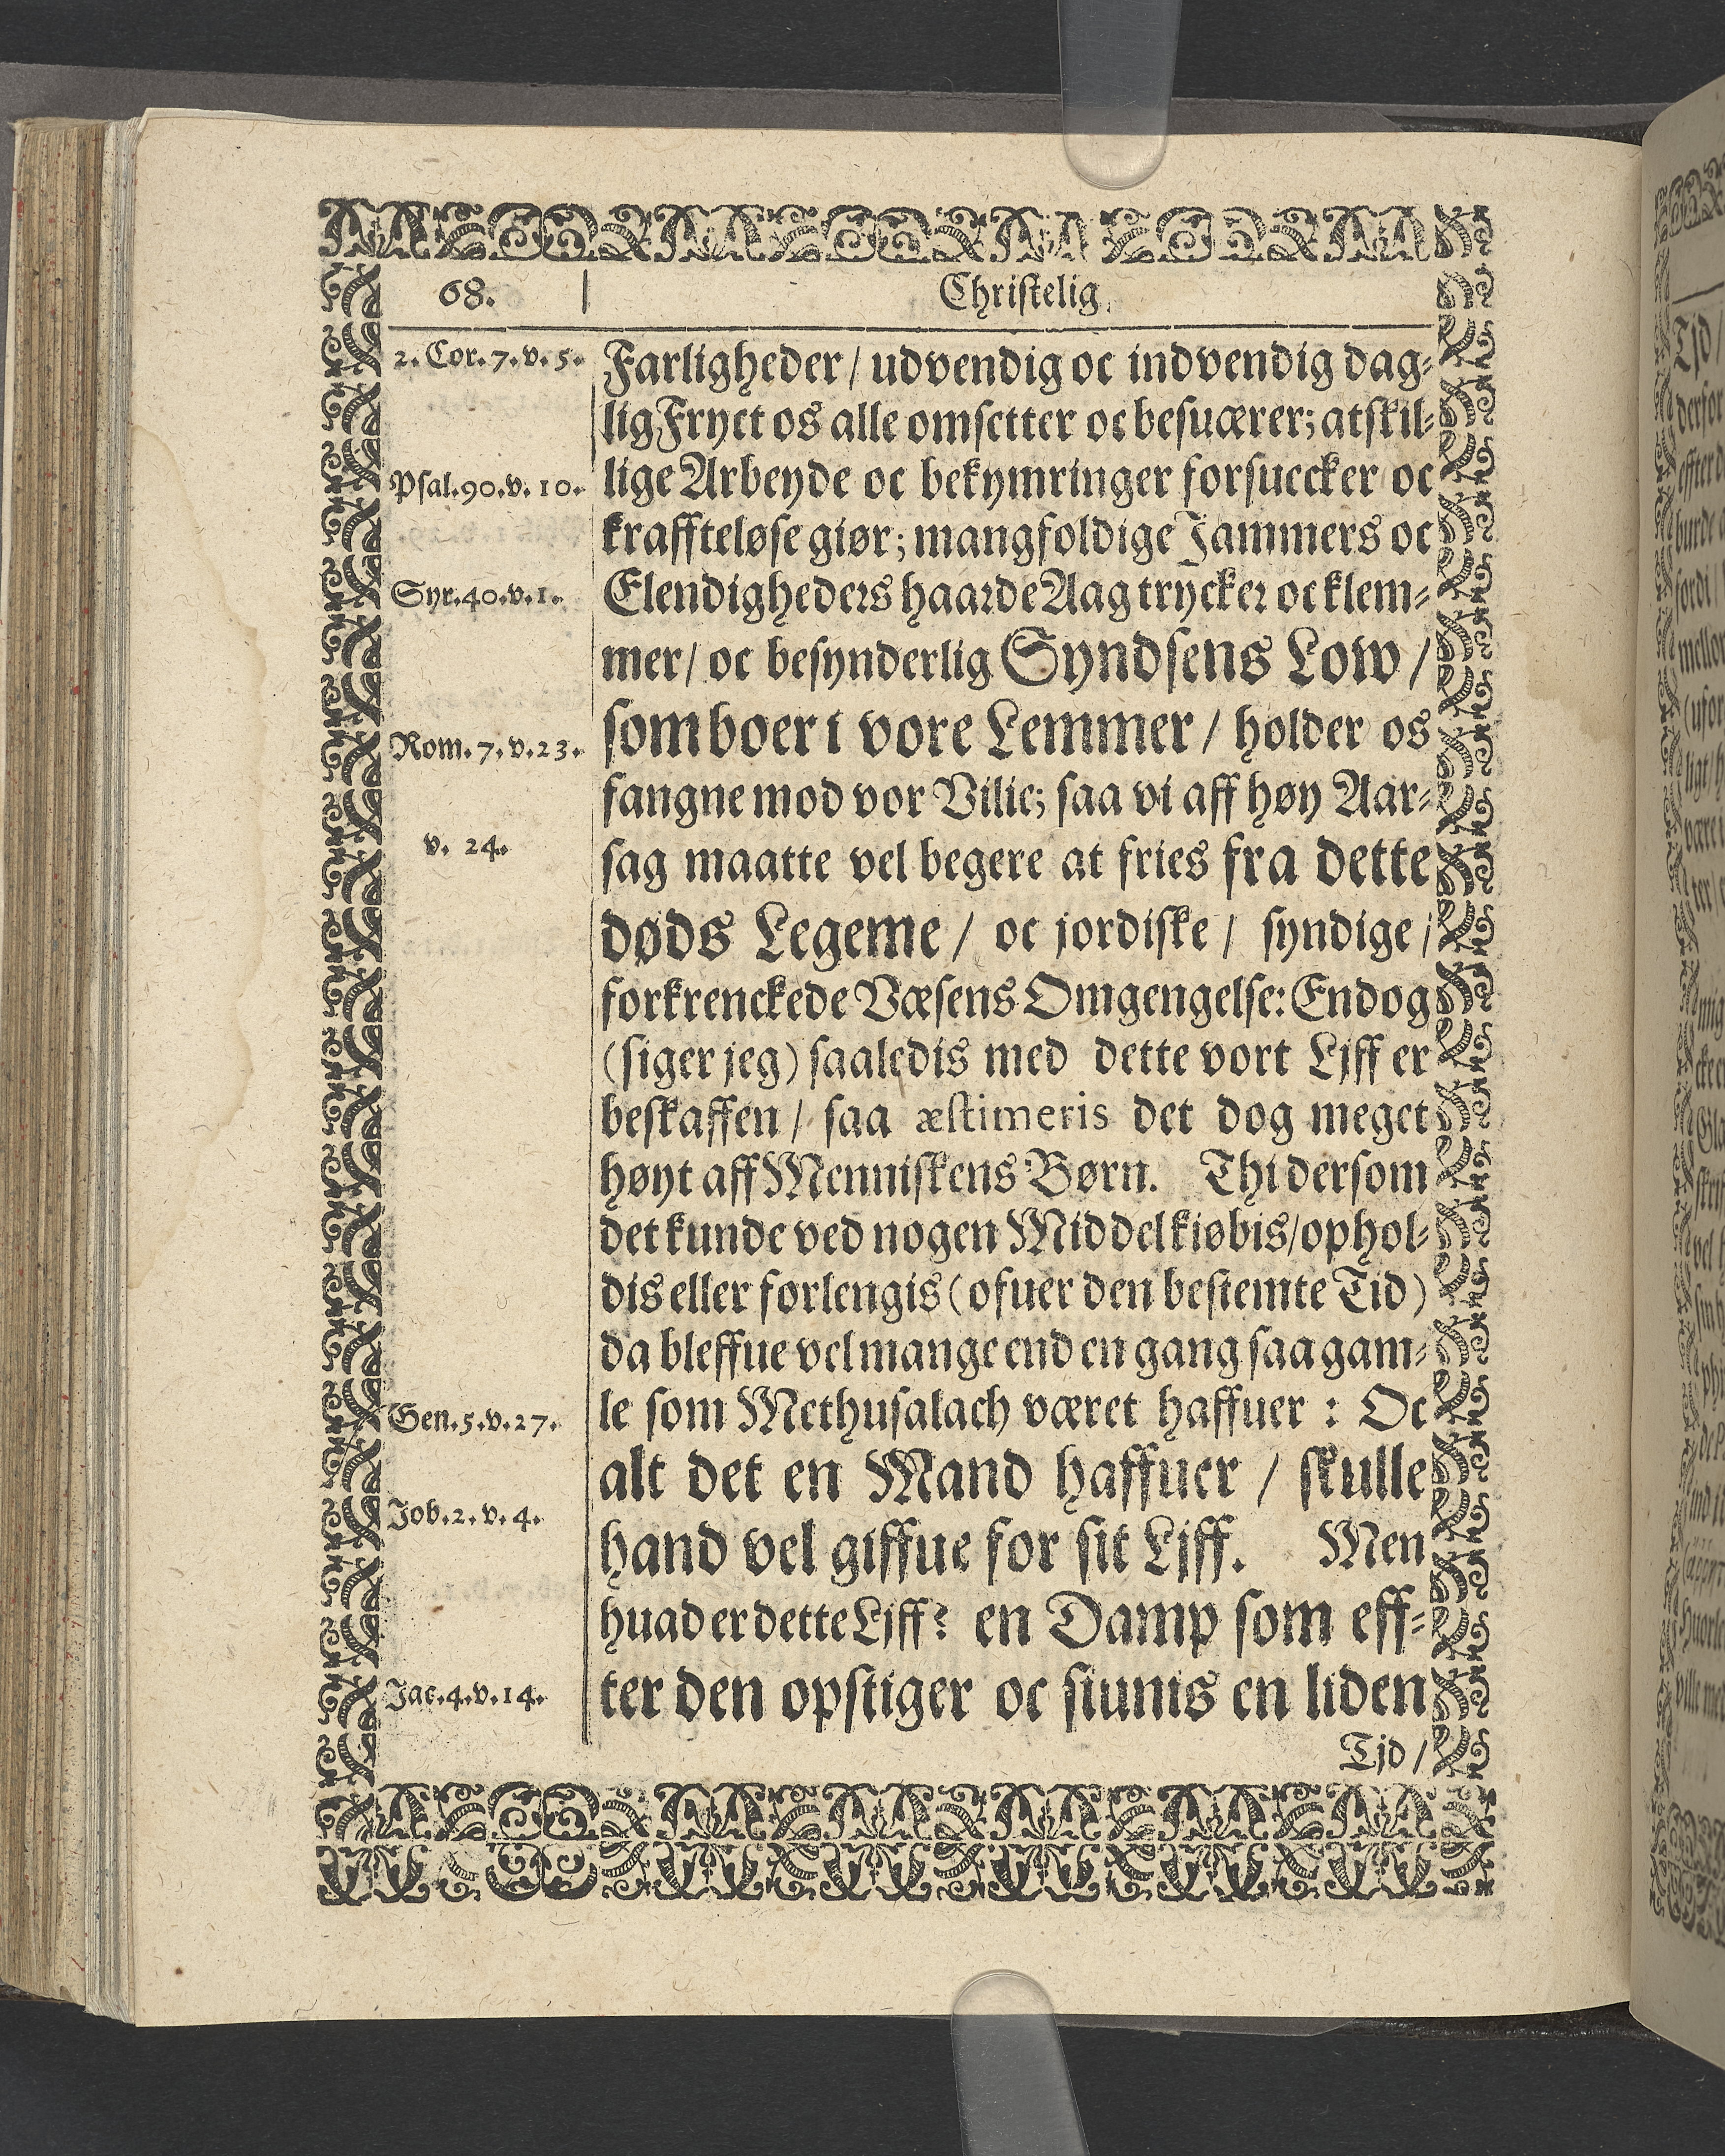 68.
Christelig
2. Cor. 7. v. 5.
Farligheder / udvendig oc indvendig dag⸗
lig Fryct os alle omsetter oc besuærer; atskil⸗
Psal. 90. v. 10.
lige Arbeyde oc bekymringer forsuecker oc
kraffteløse giør; mangfoldige Jammers oc
Syr. 40. v. 1.
Elendigheders haarde Aag trycker oc klem⸗
mer / oc besynderlig Syndsens Low /
Rom. 7. v. 23.
som boer i vore Lemmer / holder os
fangne mod vor Vilie; saa vi aff høy Aar⸗
v. 24.
sag maatte vel begere at fries fra dette
døds Legeme / oc jordiske / syndige /
forkrenckede Væsens Omgengelse: Endog
(siger jeg) saaledis med dette vort Ljff er
beskaffen / saa æstimeris det dog meget
høyt aff Menniskens Børn. Thi dersom
det kunde ved nogen Middel kiøbis / ophol⸗
dis eller forlengis (ofuer den bestemte Tid)
da bleffue vel mange end en gang saa gam⸗
Gen. 5. v. 27.
le som Methusalach været haffuer : Oc
alt det en Mand haffuer / skulle
Job. 2. v. 4.
hand vel giffue for sit Ljff. Men
huad er dette Ljff? en Damp som eff⸗
Jac. 4. v. 14.
ter den opstiger oc siunis en liden
Tjd /